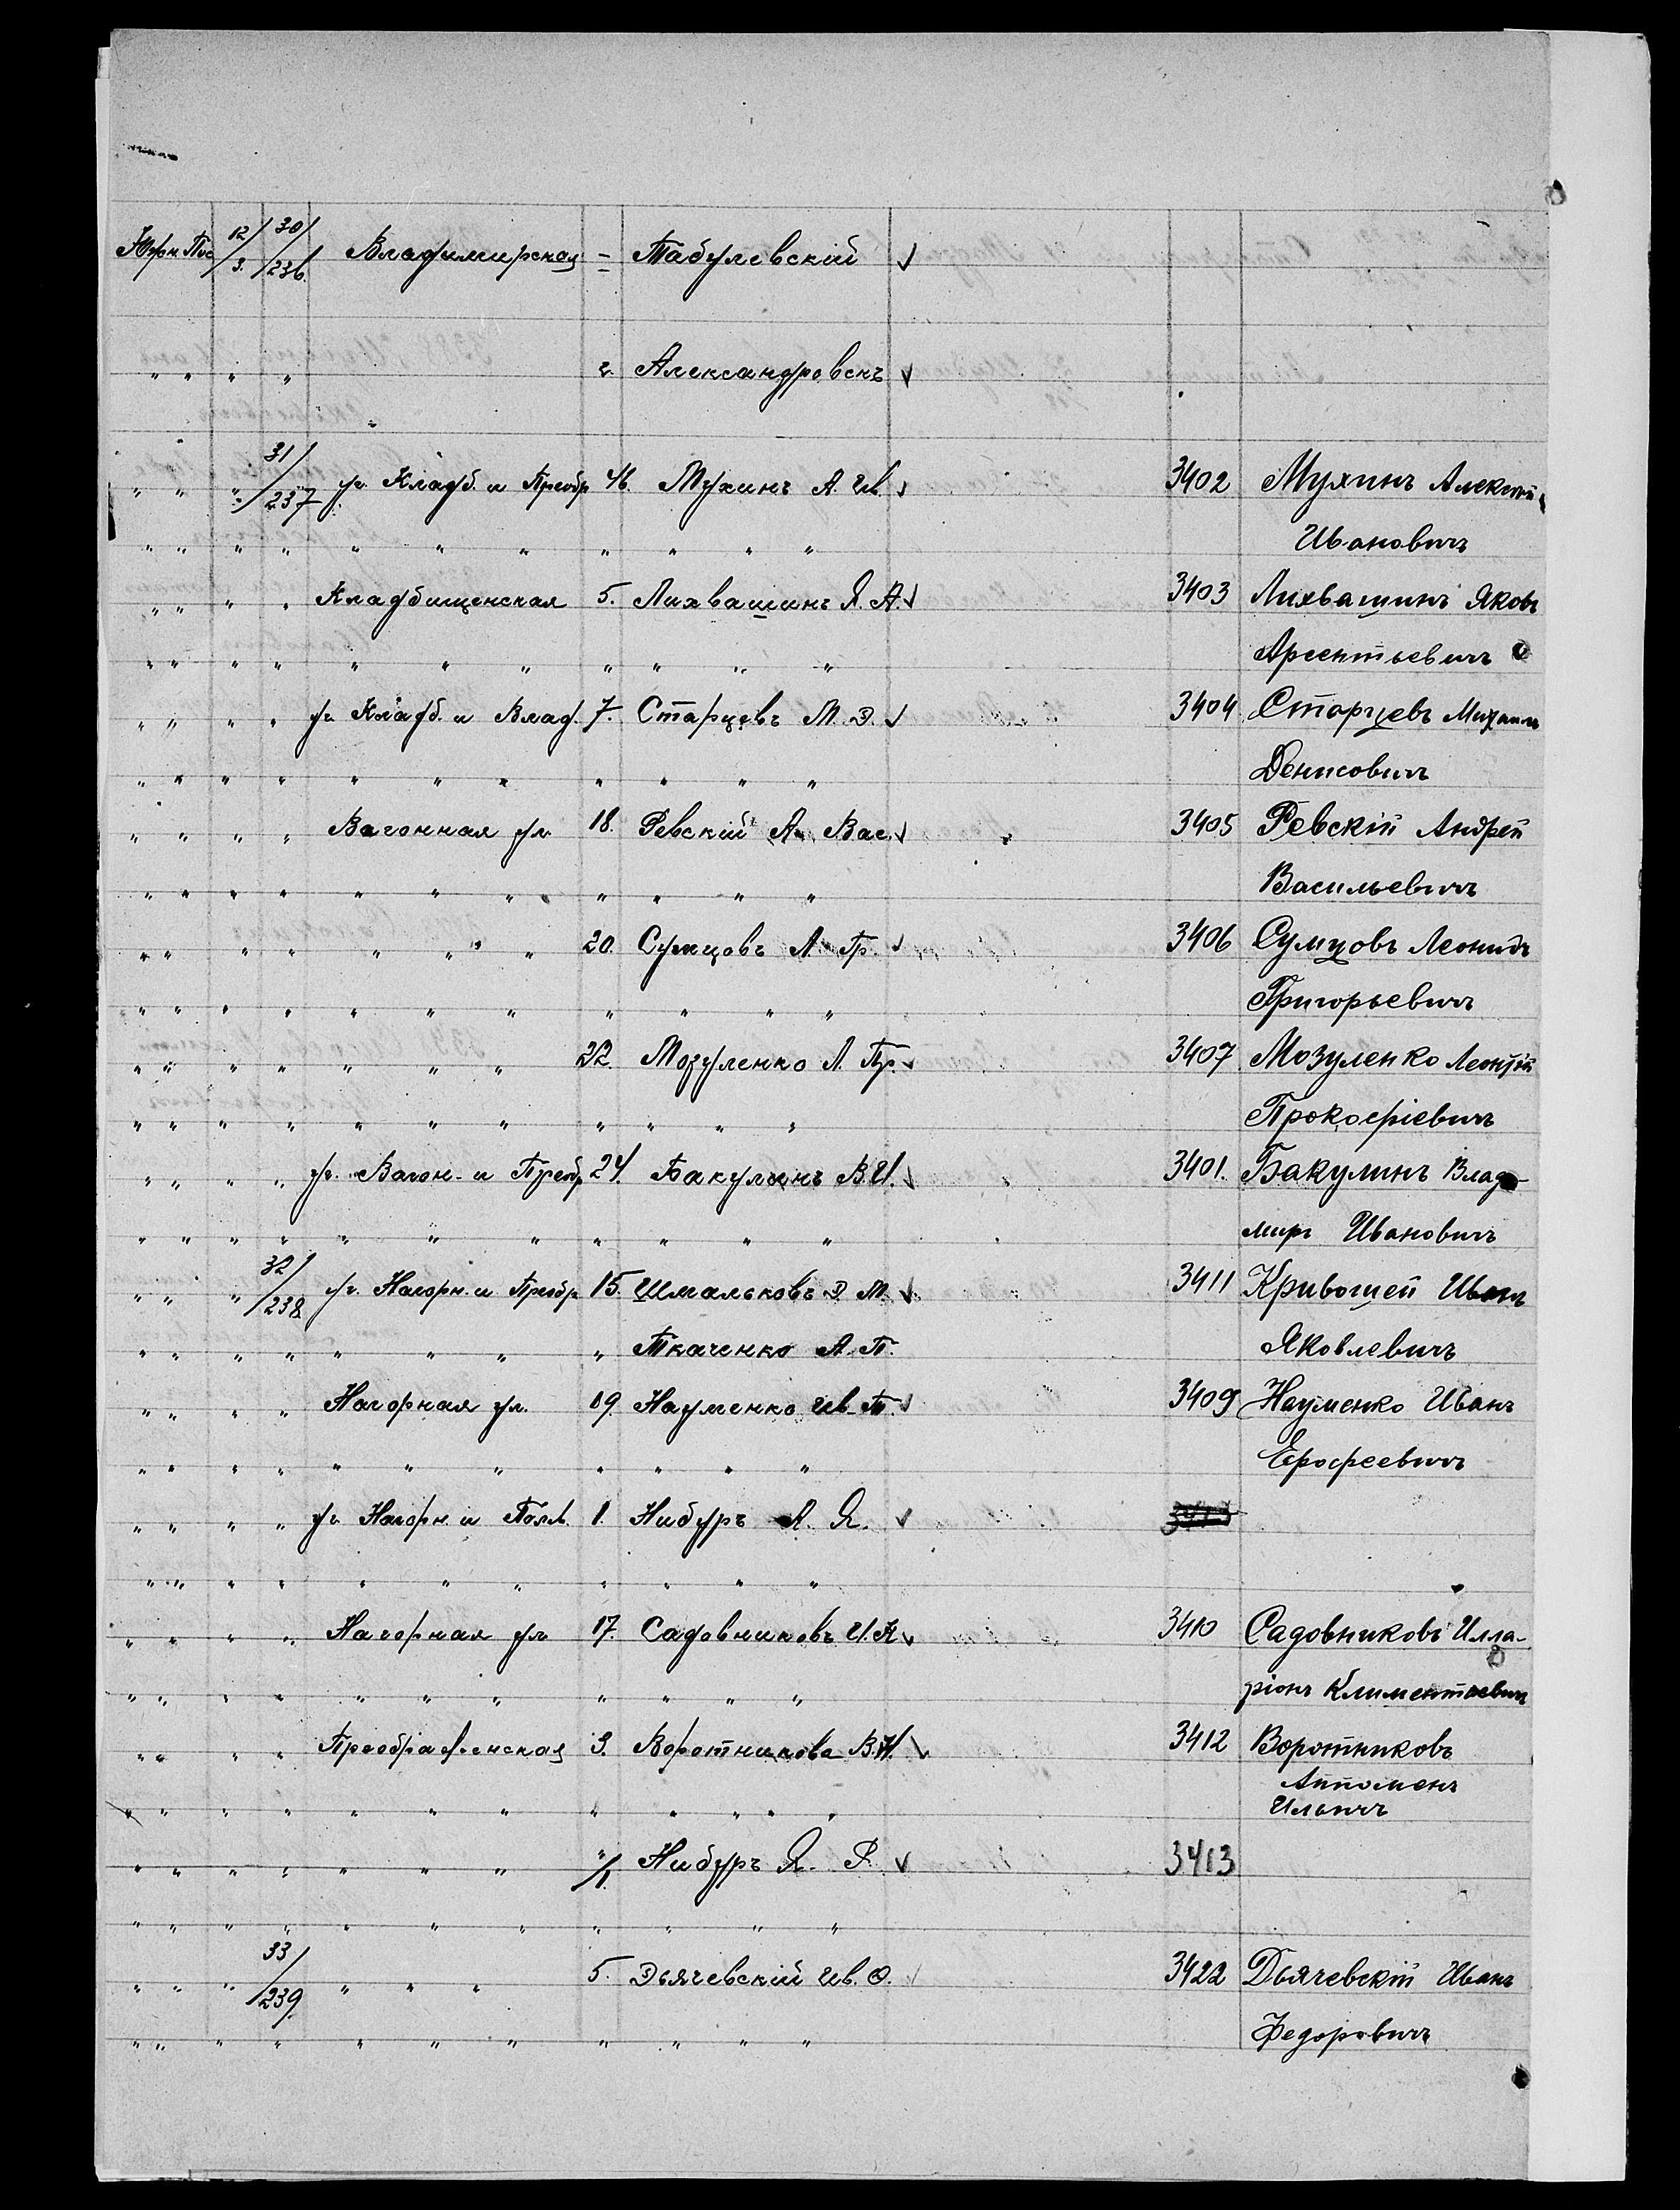 Южн. Пос. 12/3. 30/236. Владимирская – Табулевскій √
" " " " г. Александровскъ √
" " " 31/237 уг. Кладб. и Преобр 46. Мухинъ А. Ив. √ 3402 Мухинъ Алексѣй
" " " " " " " " " " " Ивановичъ
" " " " Кладбищенская 5. Лихвашинъ Я. А. √ 3403 Лихвашинъ Яковъ
" " " " " " " " " " " Арсентьевичъ
" " " " уг. Кладб. и Влад. 7. Старцевъ М. Д. √ 3404 Старцевъ Михаилъ
" " " " " " " " " " " Денисовичъ
" " " " Вагонная ул. 18. Ревскій А. Вас. √ 3405 Ревскій Андрей
" " " " " " " " " " " Васильевичъ
" " " " " " " 20. Сумцовъ Л. Гр. √ 3406 Сумцовъ Леонидъ
" " " " " " " " " " " Григорьевичъ
" " " " " " " 22. Мозуленко Л. Пр. √ 3407 Мозуленко Леонтій
" " " " " " " " " " " Прокофіевичъ
" " " " уг. Вагон. и Преобр 24. Бакулинъ В. И. √ 3401. Бакулинъ Влади-
" " " " " " " " " " " миръ Ивановичъ
" " " 32/238. уг. Нагорн. и Преобр. 15. Шмальковъ Д. М. √ 3411 Кривошей Иванъ
" " " " " " " " Ткаченко А. П. Яковлевичъ
" " " " Нагорная ул. 19. Науменко Ив. Т. √ 3409 Науменко Иванъ
" " " " " " " " " " " Ерофеевичъ
" " " " уг. Нагорн. и Полт. 1. Нибуръ А. Я. √ 3413
" " " " " " " " " " "
" " " " Нагорная ул 17. Садовниковъ И. К √ 3410 Садовниковъ Илла-
" " " " " " " " " " " ріонъ Климентьевичъ
" " " " Преображенская 3. Воротникова В. И. √ 3412 Воротниковъ
" " " " " " " " " " " " Ильичъ
" " " " " " " "/1. Нибуръ Я. Р. √ 3413
" " " " " " " " " " "
" " " 33/239. " " " 5. Дьячевскій Ив. Ѳ. √ 3422 Дьячевскій Иванъ
" " " " " " " " " " " Федоровичъ